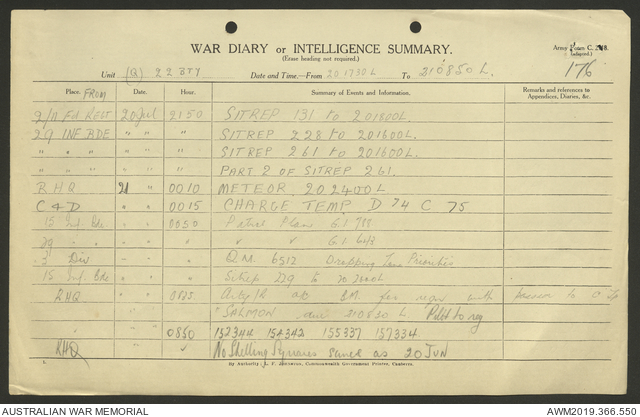 WAR DIARY or INTELLIGENCE SUMMARY.
(Erase heading not required.)
Army Form C. 2118.
(adapted.)
176
Unit (Q) 22 BTY Date and Time—From 201730L To 210850L.
Place. FROM Date. Hour. Summary of Events and Information. Remarks and references to Appendices, Diaries, &c.
2/11 Fd REGT 20 Jul 2150 SITREP 131 to 201800L.
29 INF BDE " " " SITREP 228 to 201600L.
" " " " " " SITREP 261 to 201600L.
" " " " " " PART 2 of SITREP 261.
RHQ 21 " 0010 METEOR 202400L
C & D " " 0015 CHARGE TEMP D 74 C 75
15 Inf. Bde " " 0050 Patrol Plans G1
29 " " " " " " " G1 643
3 Div " " " Q.M. 6512 Dropping Priorities
15 Inf. Bde " " " Sitrep to
RHQ " " 0825 BM. for
"SALMON 210830 L. Pilot to reg
" " " 0850 152344 152342 155337 157334
RHQ " " No Shelling Squares same as 20 JUN
By Authority: L. F. Johnston, Commonwealth Government Printer, Canberra.
AUSTRALIAN WAR MEMORIAL
AWM2019.366.550